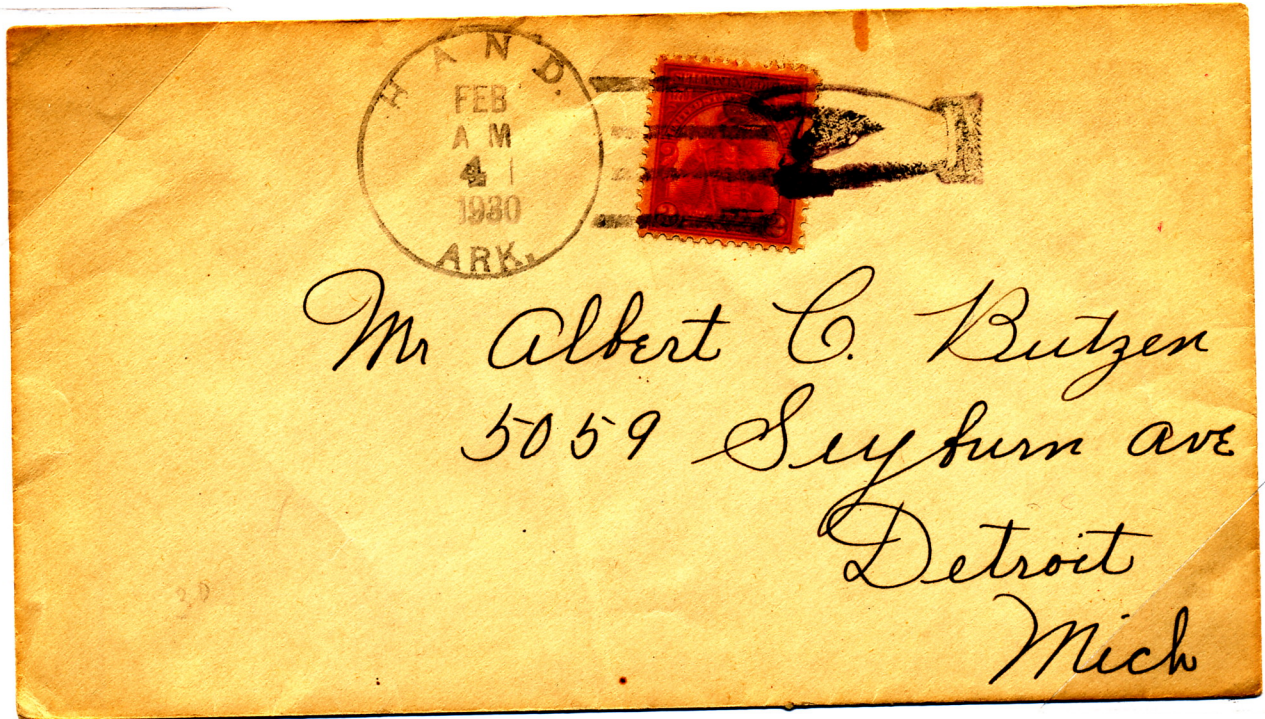 HAND.
FEB
A M
4 1
1930
ARK.
Mr Albert C. Butzen
5059 Seyburn ave
Detroit
Mich
20